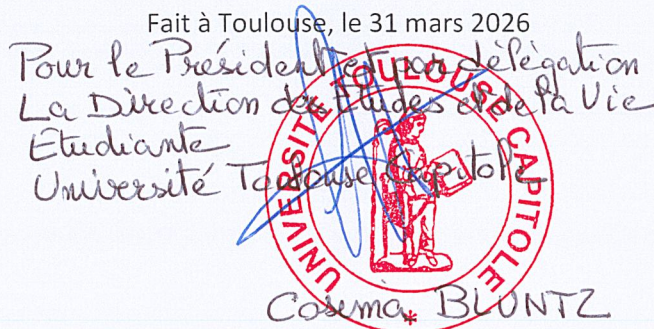 Fait à Toulouse, le 31 mars 2026
Pour le Président et par délégation
La Direction des Études et de la Vie
Etudiante
Université Toulouse Capitole
UNIVERSITE TOULOUSE CAPITOLE
Cosima BLUNTZ